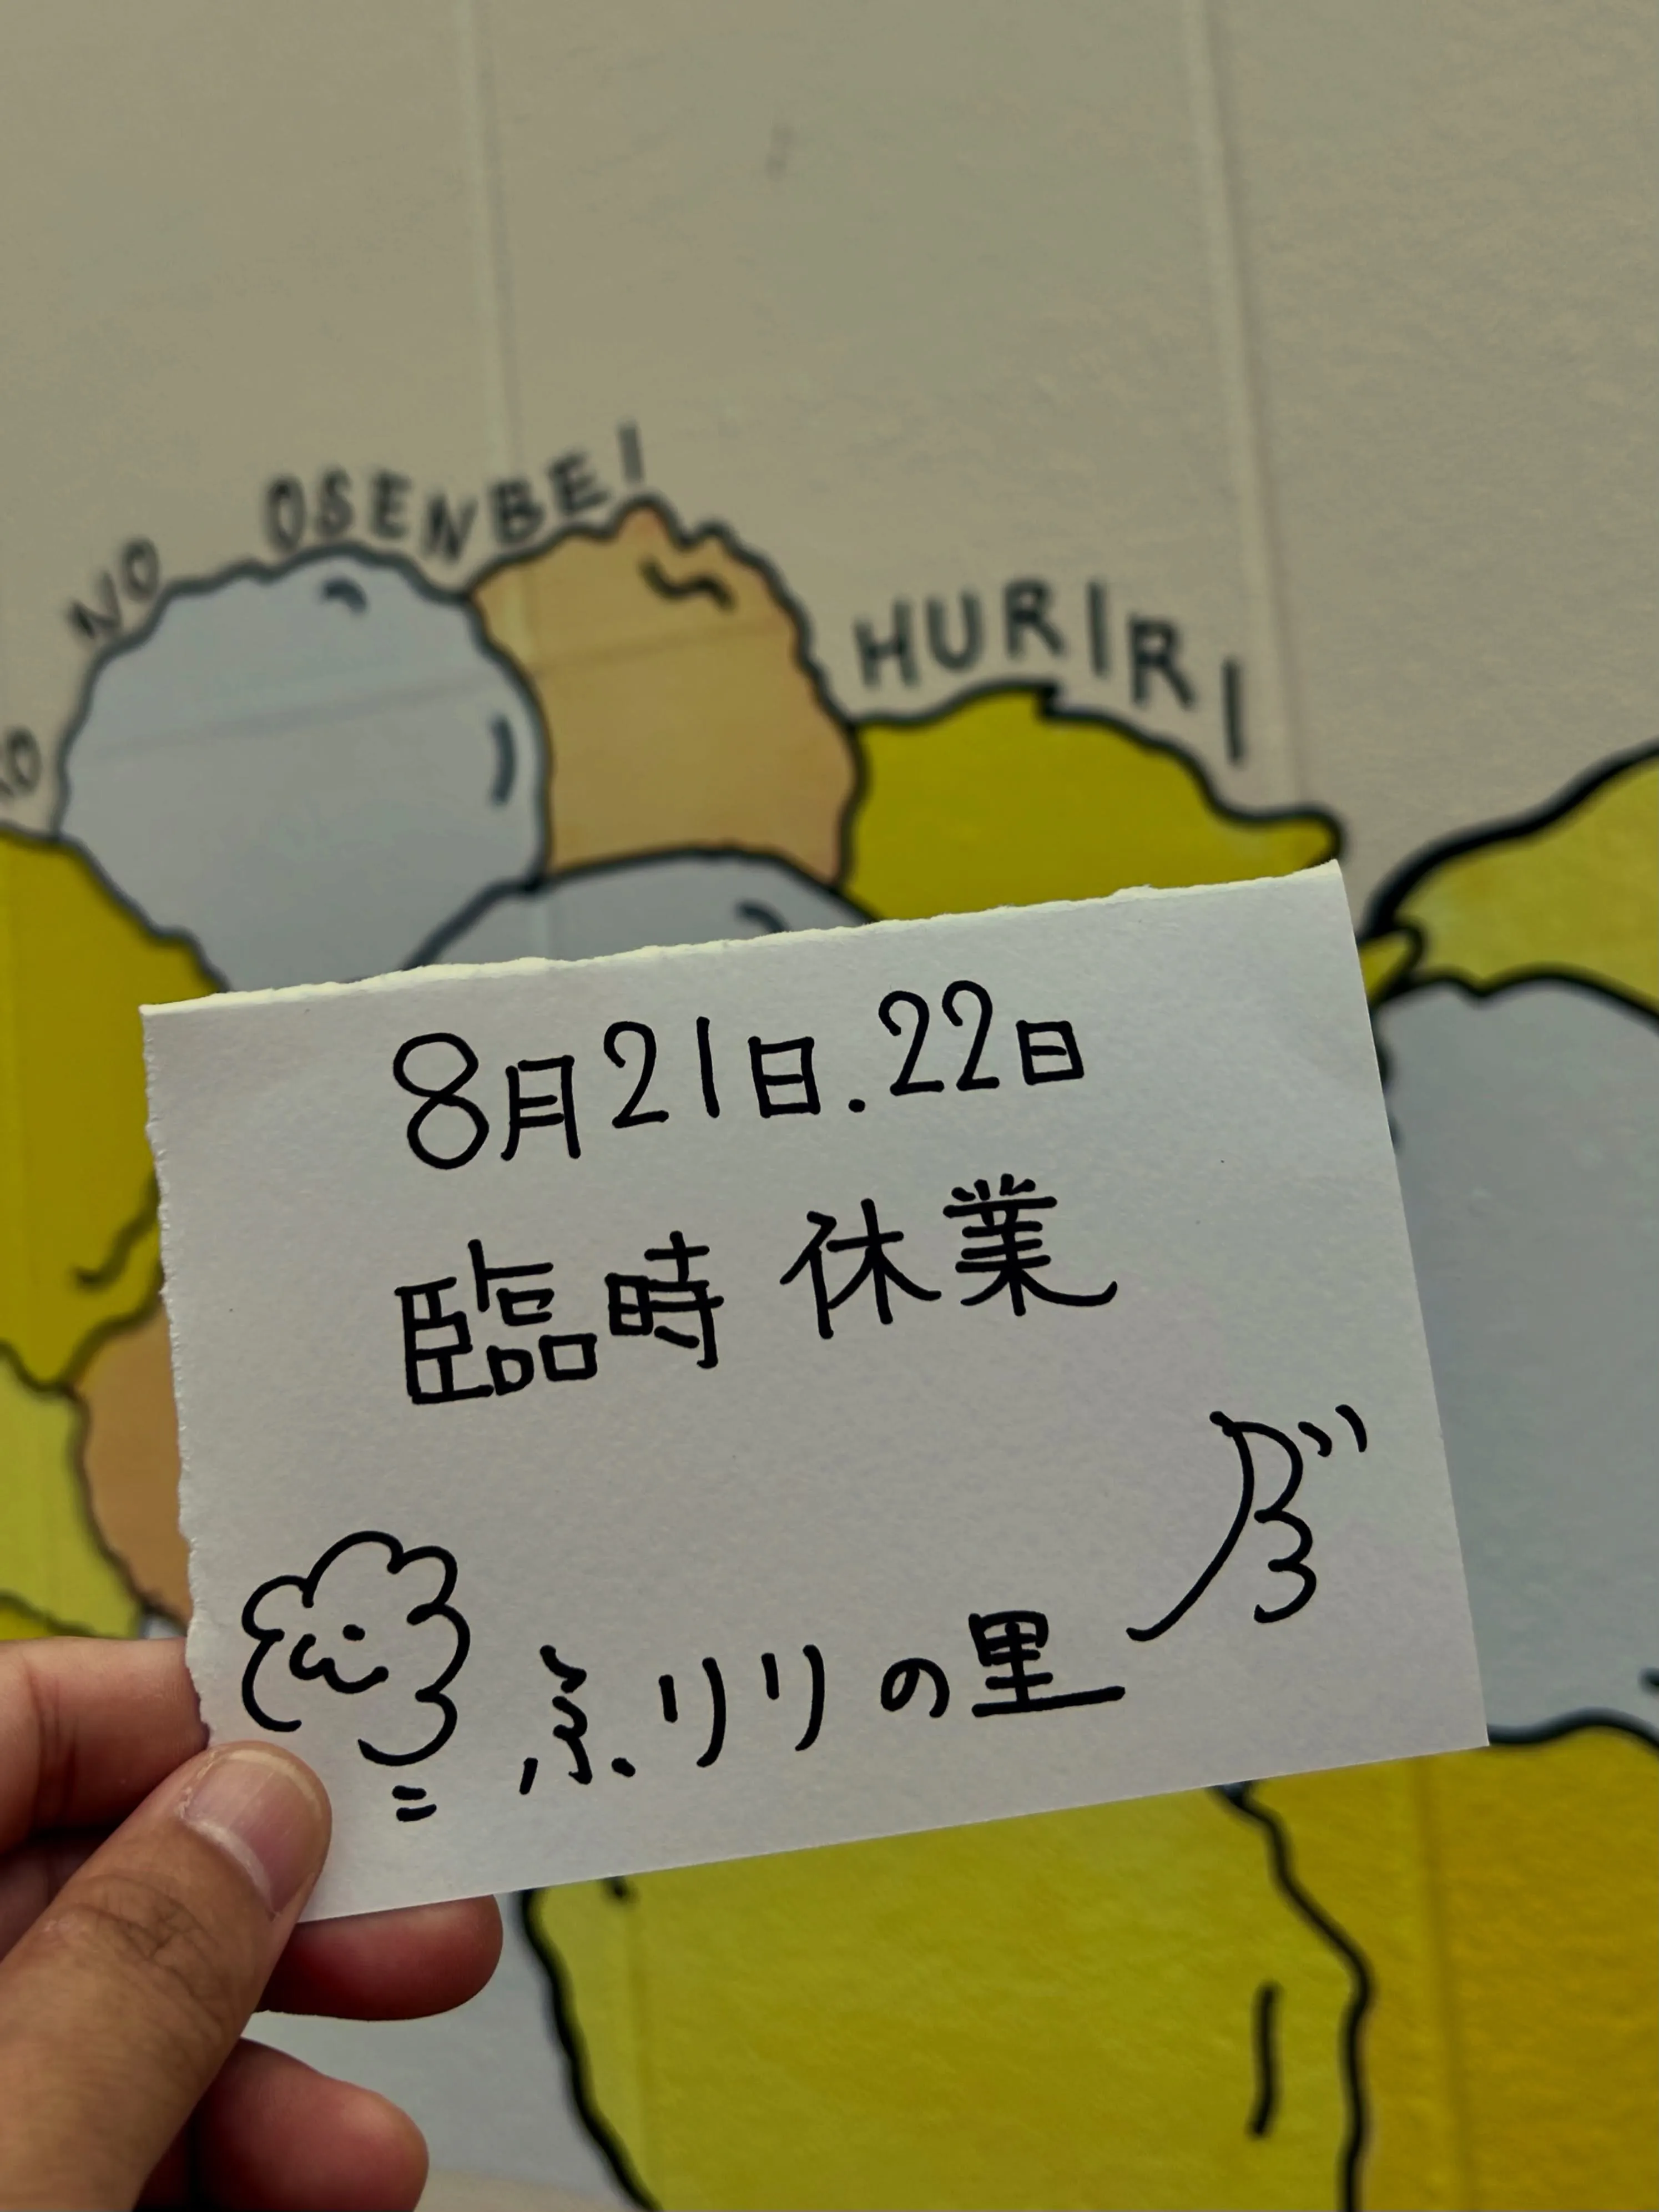 NO OSENBEI HURIRI
8月21日.22日
臨時休業
ふリリの里